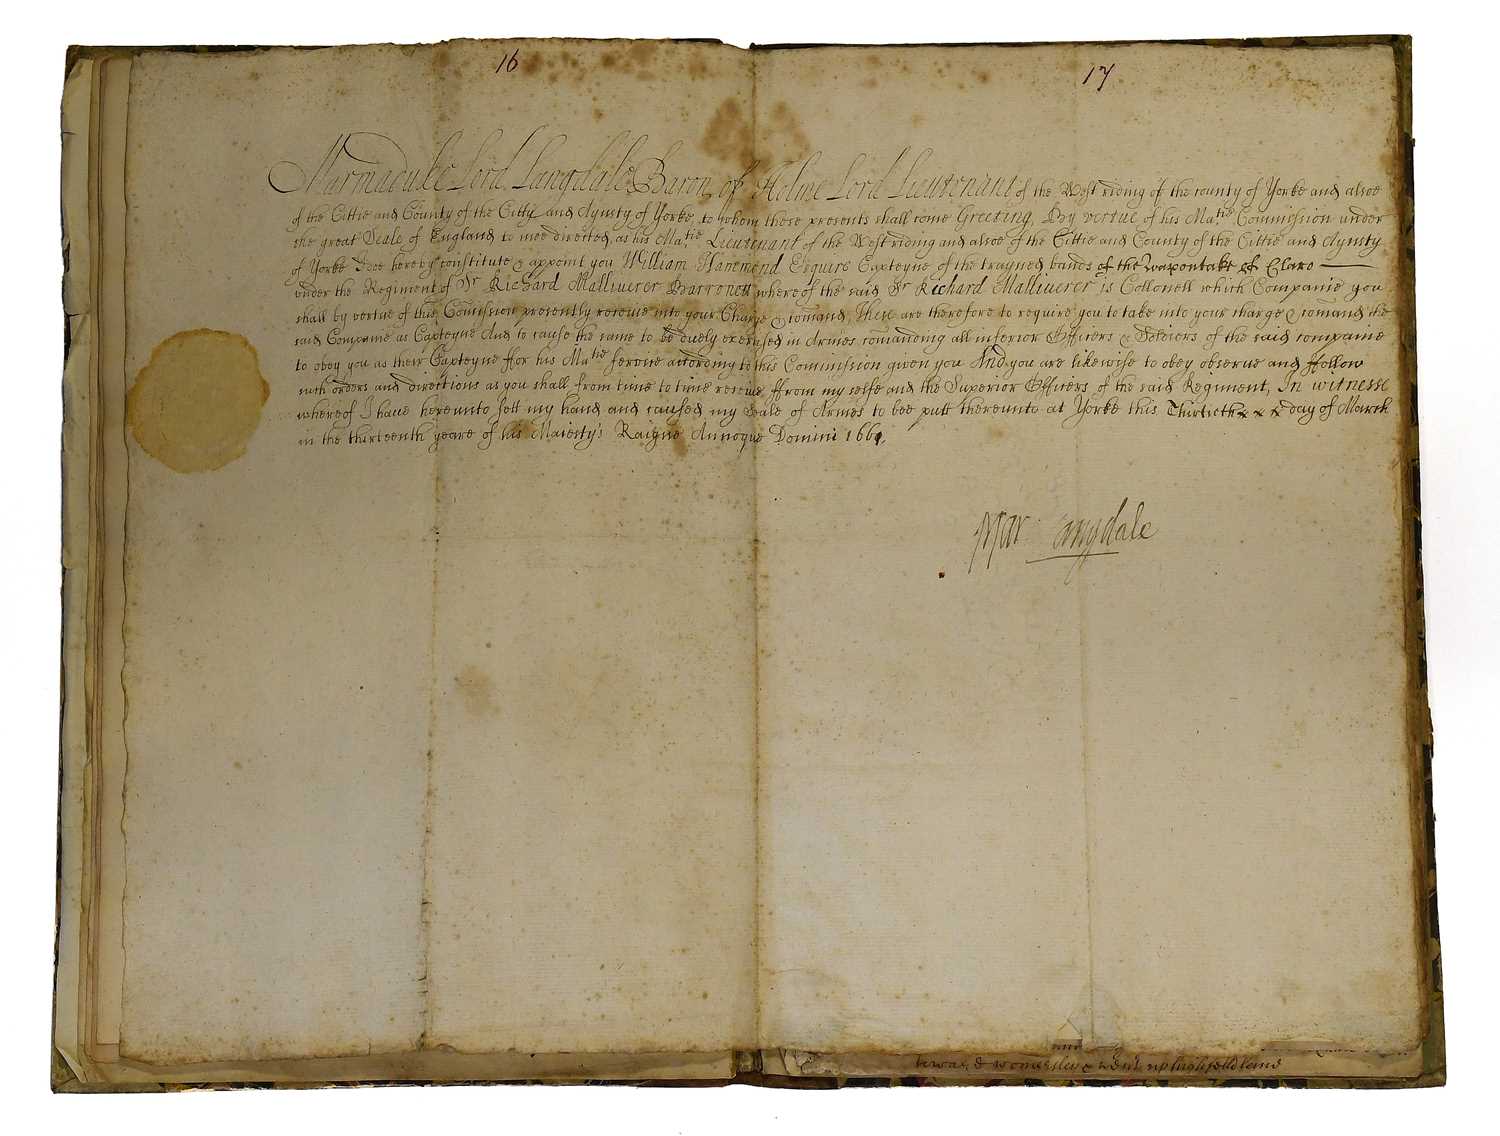 16
17
Marmaduke Lord Langdale Baron of Holme Lord Lieutenant of the West riding of the county of Yorke and alsoe
of the Cittie and County of the Citty and Aynsty of Yorke, to whom these presents shall come Greeting, By vertue of his Ma:tie Commission under
the great Seale of England to mee directed, as his Ma:tie Lieutenant of the West riding and alsoe of the Cittie and County of the Cittie and Aynsty
of Yorke I doe hereby constitute & appoint you William Hamond Esquire Capteyne of the trayned bands of the Wapontake of Claro
under the Regiment of Sr Richard Malliverer Barronett whereof the said Sr Richard Malliverer is Collonell which Companie you
shall by vertue of this Comission presently receive into your Charge & comand, These are therefore to require you to take into your charge & comand the
said Companie as Capteyne And to cause the same to be duely exercised in Armes comanding all inferior Officers & Soldiers of the said companie
to obey you as their Capteyne ffor his Ma:tie service according to this Commission given you And you are likewise to obey observe and ffollow
such orders and directions as you shall from time to time receive ffrom my selfe and the Superior Officers of the said Regiment, In witnesse
whereof I have hereunto sett my hand and caused my Seale of Armes to bee putt thereunto at Yorke this Thirtieth x x x day of March
in the thirteenth yeare of his Majesty's Raigne Annoque Domini 1661,
Mar: Langdale
& womersley & went up highfeild lane